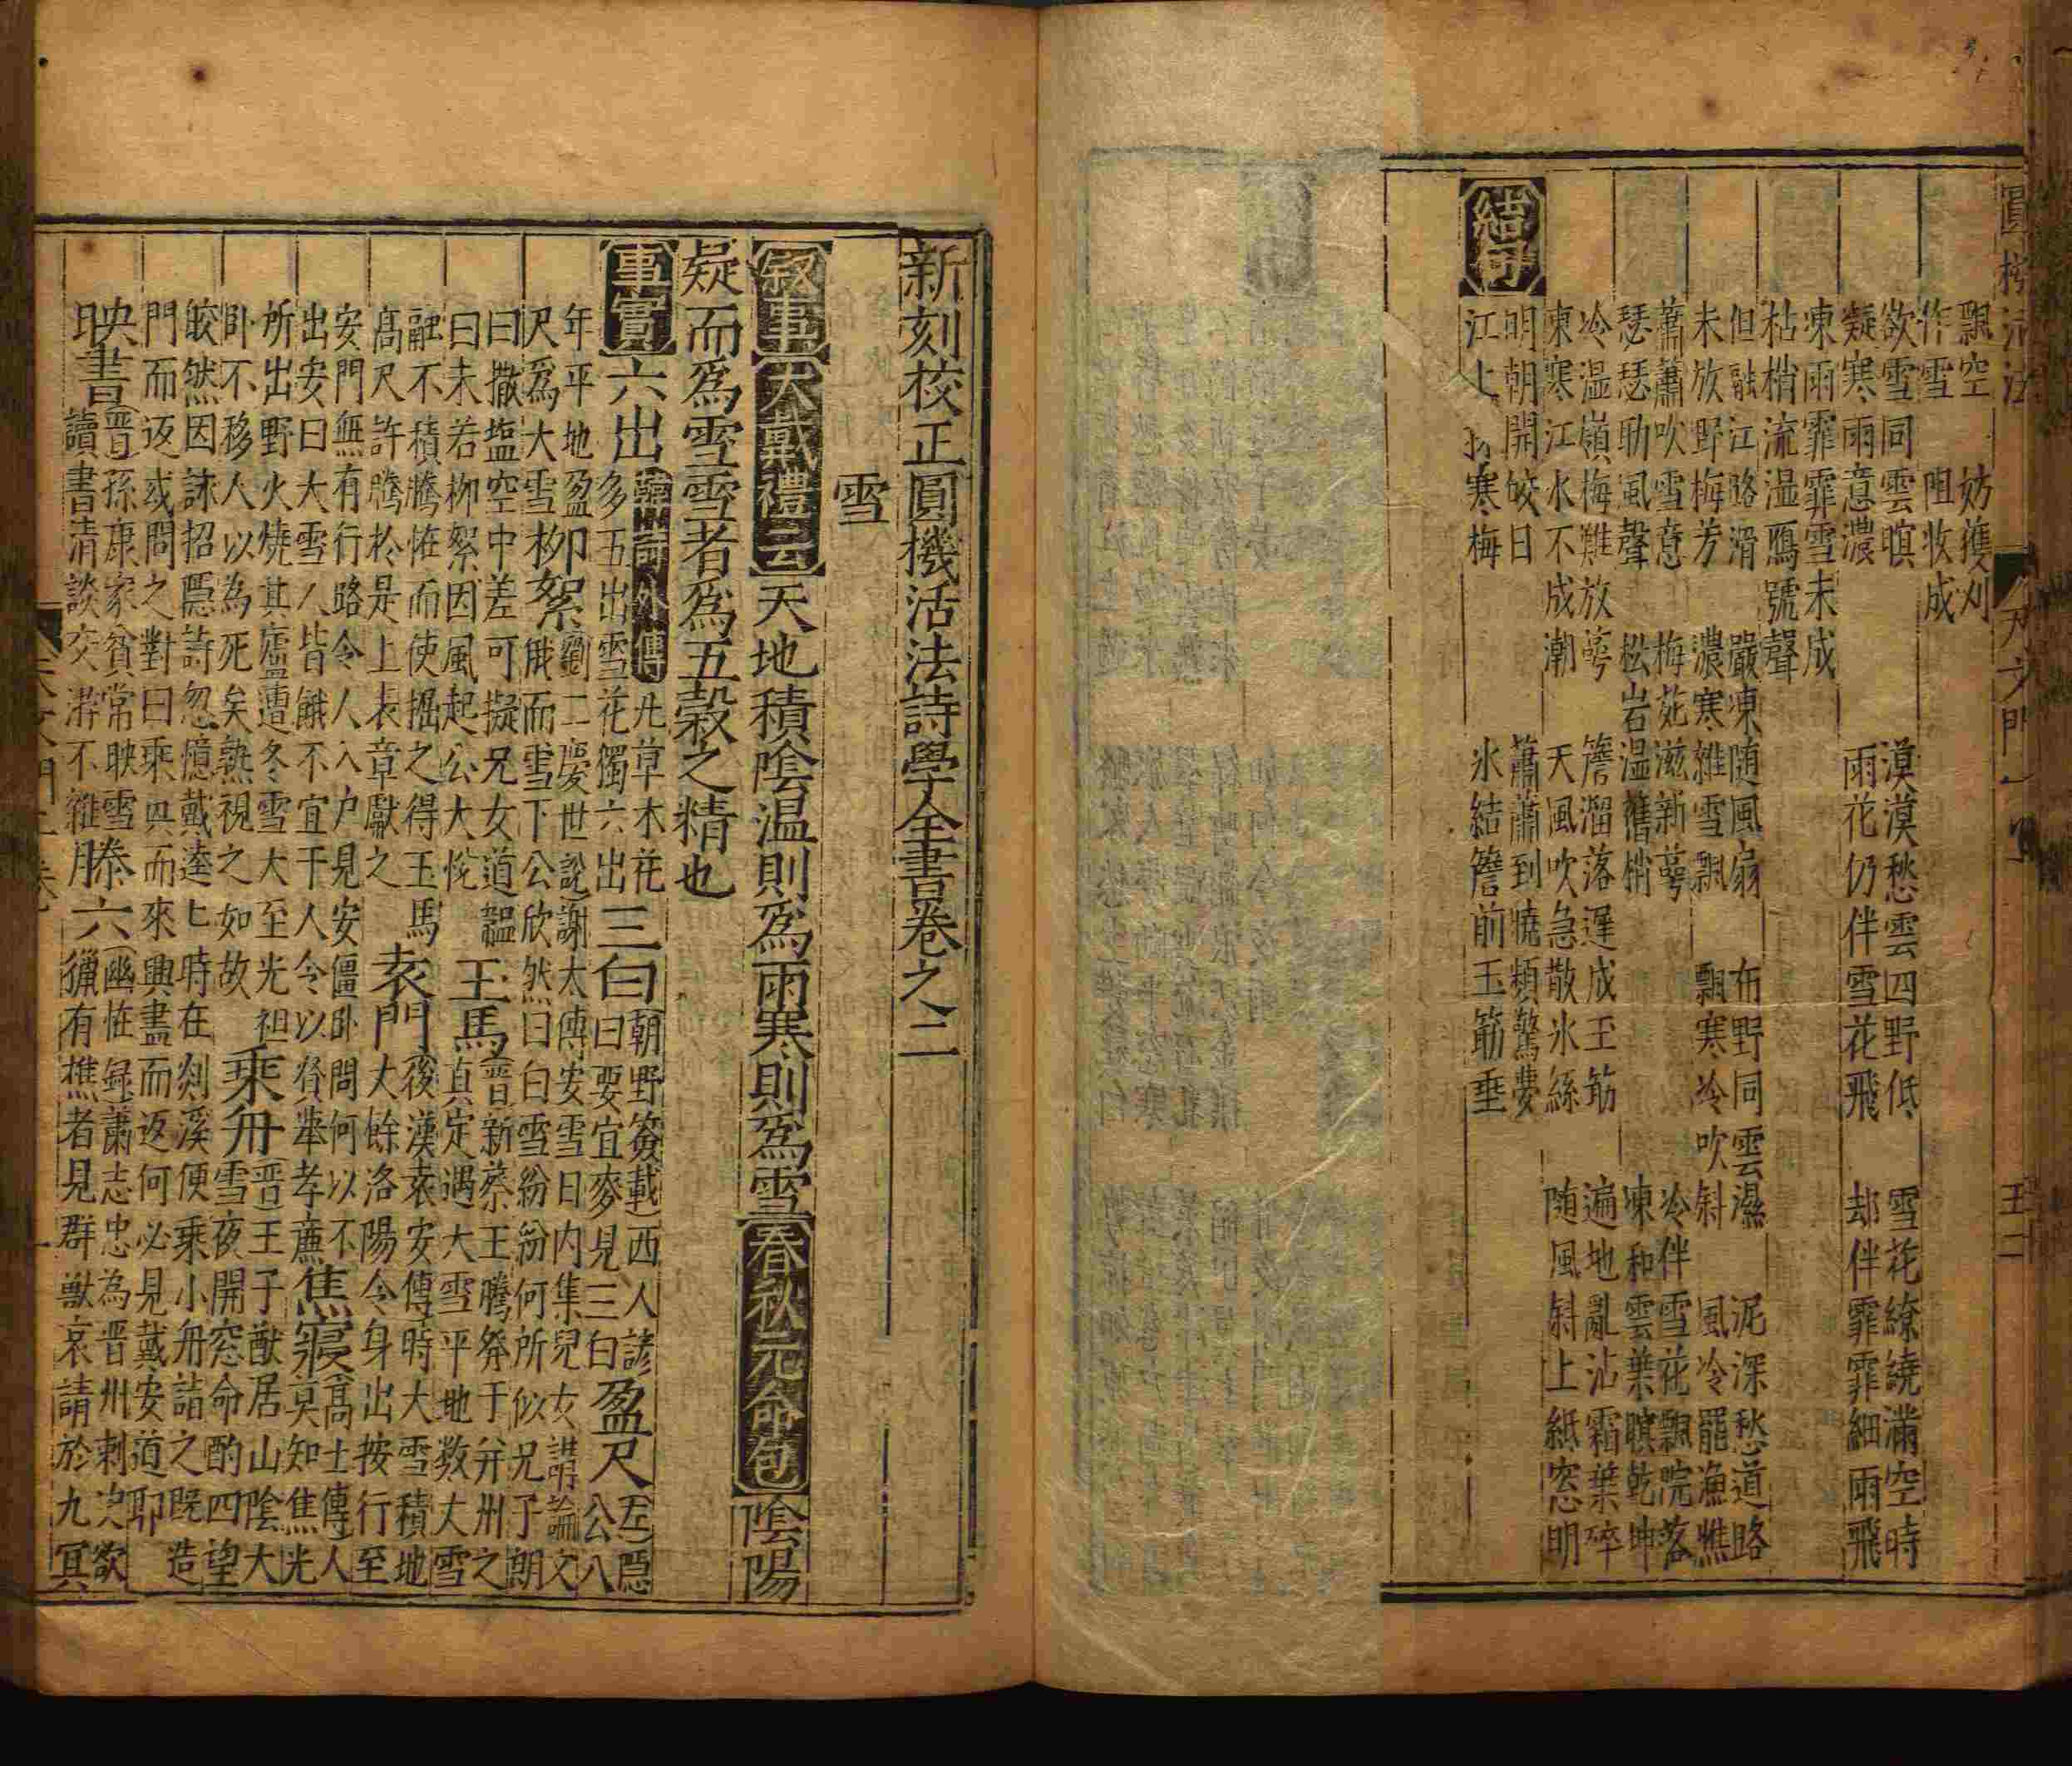 飄空　妨穫刈
作雪　阻收成
欲雪同雲暝　漠漠愁雲四野低　雪花繚繞滿空時
凝寒雨意濃　雨花仍伴雪花飛　却伴霏霏細雨飛
凍雨霏霏雪未成
枯梢流溫鴈號聲
但融江路滑　嚴凍随風扇　布野同雲濕　泥深愁道路
未放野梅芳　濃寒雜雪飄　飄寒冷吹斜　風冷罷漁樵
蕭蕭吹雪意　梅苑滋新蕚　冷伴雪花飄院落
瑟瑟助風聲　松岩温舊梢　凍和雲葉暝乾坤
冷温嶺梅難放蕚　簷溜落遲成玉筯　遍地亂沾霜葉碎
凍寒江水不成潮　天風吹急散氷絲　随風斜上紙窓明
結句
明朝開皎日　蕭蕭到曉頻驚夢
江上　寒梅　氷結簷前玉筯垂
新刻校正圓機活法詩學全書卷之二
雪
叙事　大戴禮云　天地積陰温則為雨寒則為雪　春秋元命苞　陰陽
凝而為雪雪者為五榖之精也
事實　六出　韓詩外傳　凡草木花
多五出雪花獨六出　三白　朝野僉載西人諺
曰要宜麥見三白　盈尺　左隱
公八
年平地盈
尺為大雪　柳絮　劉二慶世說謝太傅安雪日内集兒女講論文
俄而雪下公欣然曰白雪紛紛何所似兄子朗
曰撒塩空中差可擬兄女道韞
曰未若柳絮因風起公大悅　玉馬　晋新蔡王騰發于并州之
真定遇大雪平地数大雪
融不積騰怪而使掘之得玉馬
高尺許騰於是上表章獻之　袁門　後漢袁安傳時大雪積地
大餘洛陽令身出按行至
安門無有行路令人入户見安僵卧問何以不
出安曰大雪人皆餓不宜干人令以為賢舉孝廉　焦寢　高士傳人
莫知焦光
所出野火燒其廬遭冬雪大至光袒
卧不移人以為死矣熟視之如故　乘舟　晋王子猷居山陰大
雪夜開窓命酌四望
皎然因詠招隱詩忽憶戴逵七時在剡溪便乘小舟詣之既造
門而返或問之對曰乘興而來興盡而返何必見戴安道耶
映書　晋孫康家貧常映雪
讀書清談交游不雜　滕六　幽怪録蕭志忠為晋州刺史欲
獵有樵者見群獸哀請於九冥